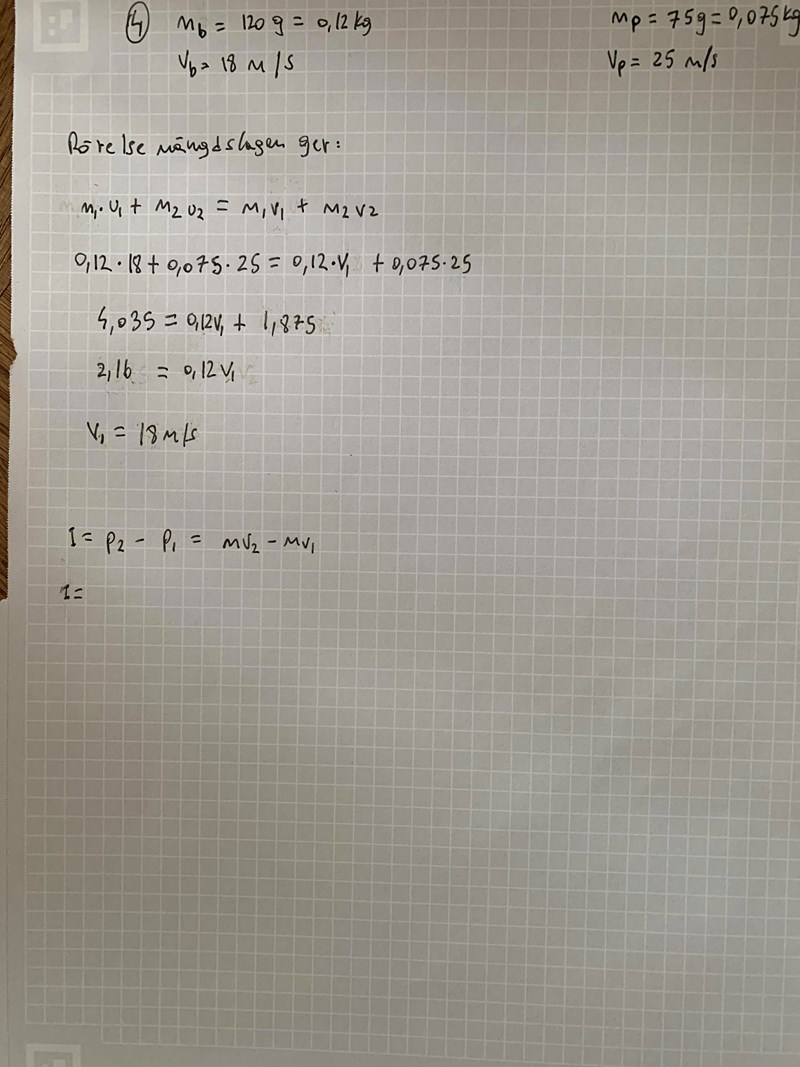 ④ mb = 120 g = 0,12 kg mp = 75g = 0,075 kg
Vb = 18 m/s Vp = 25 m/s
Rörelse mängdslagen ger:
m1·u1 + m2u2 = m1v1 + m2v2
0,12·18 + 0,075·25 = 0,12·v1 + 0,075·25
4,035 = 0,12v1 + 1,875
2,16 = 0,12v1
V1 = 18 m/s
I = p2 - p1 = mv2 - mv1
I =